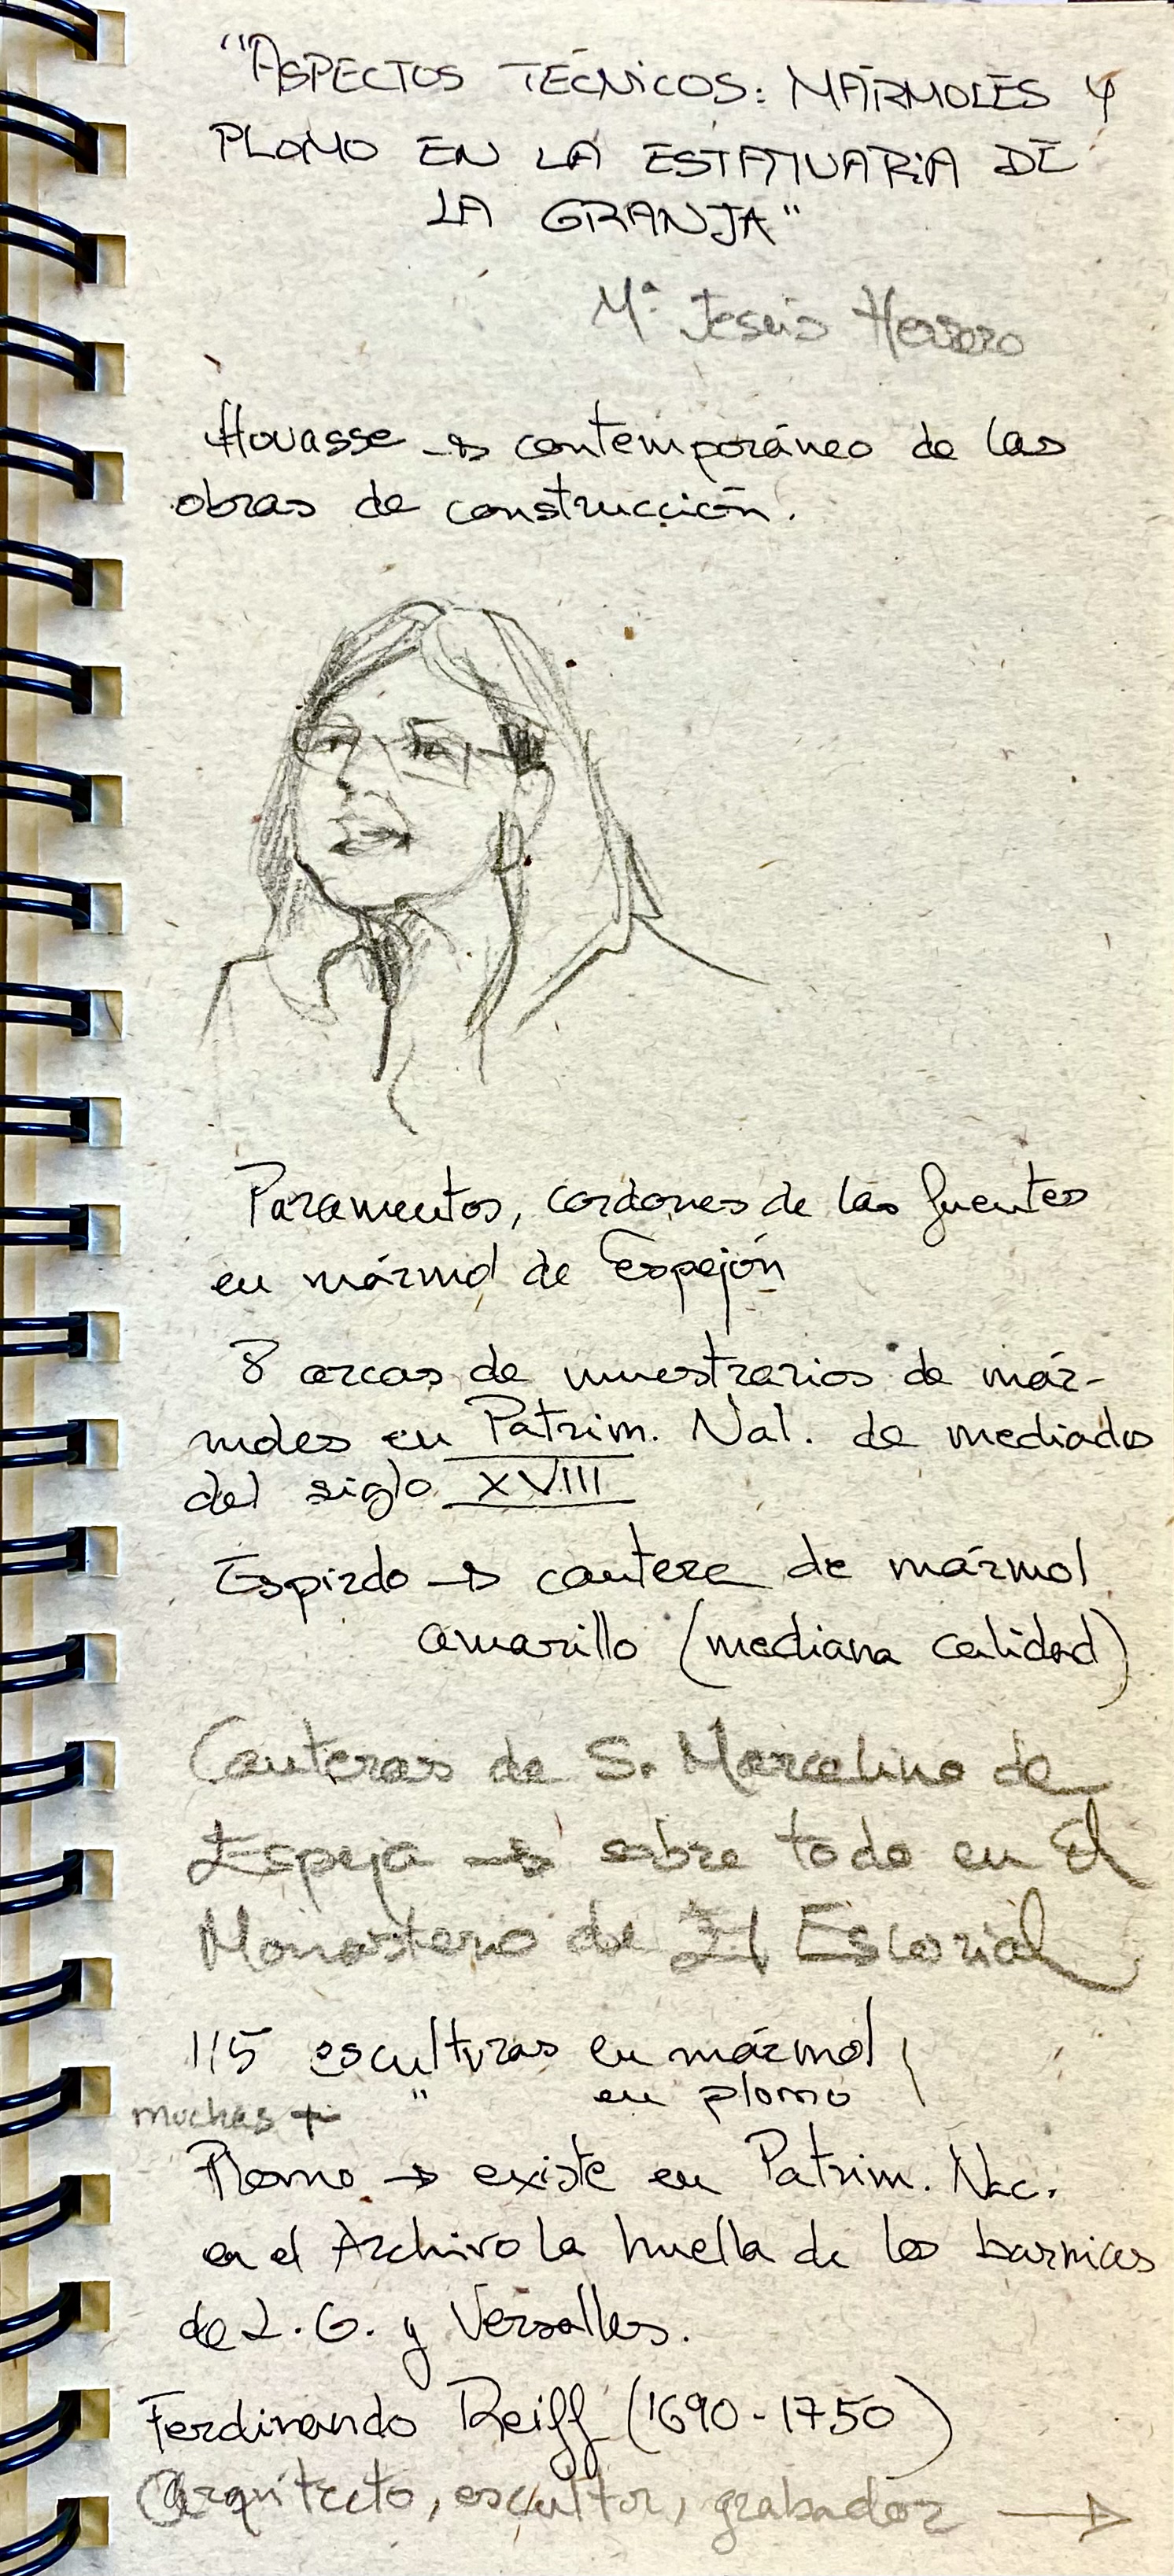 "ASPECTOS TÉCNICOS: MÁRMOLES Y
PLOMO EN LA ESTATUARIA DE
LA GRANJA"
Mª Jesús Herrero
Houasse → contemporáneo de las
obras de construcción.
Paramentos, cordones de las fuentes
en mármol de Espejón
8 arcas de muestrarios de már-
moles en Patrim. Nal. de mediados
del siglo XVIII
Espirdo → cantera de mármol
amarillo (mediana calidad)
Canteras de S. Marcelino de
Espeja → sobre todo en El
Monasterio de El Escorial
115 esculturas en mármol
muchas + " en plomo
Plomo → existe en Patrim. Nac.
en el Archivo la huella de los barnices
de L.G. y Versalles.
Ferdinando Reiff (1690-1750)
Arquitecto, escultor, grabador →